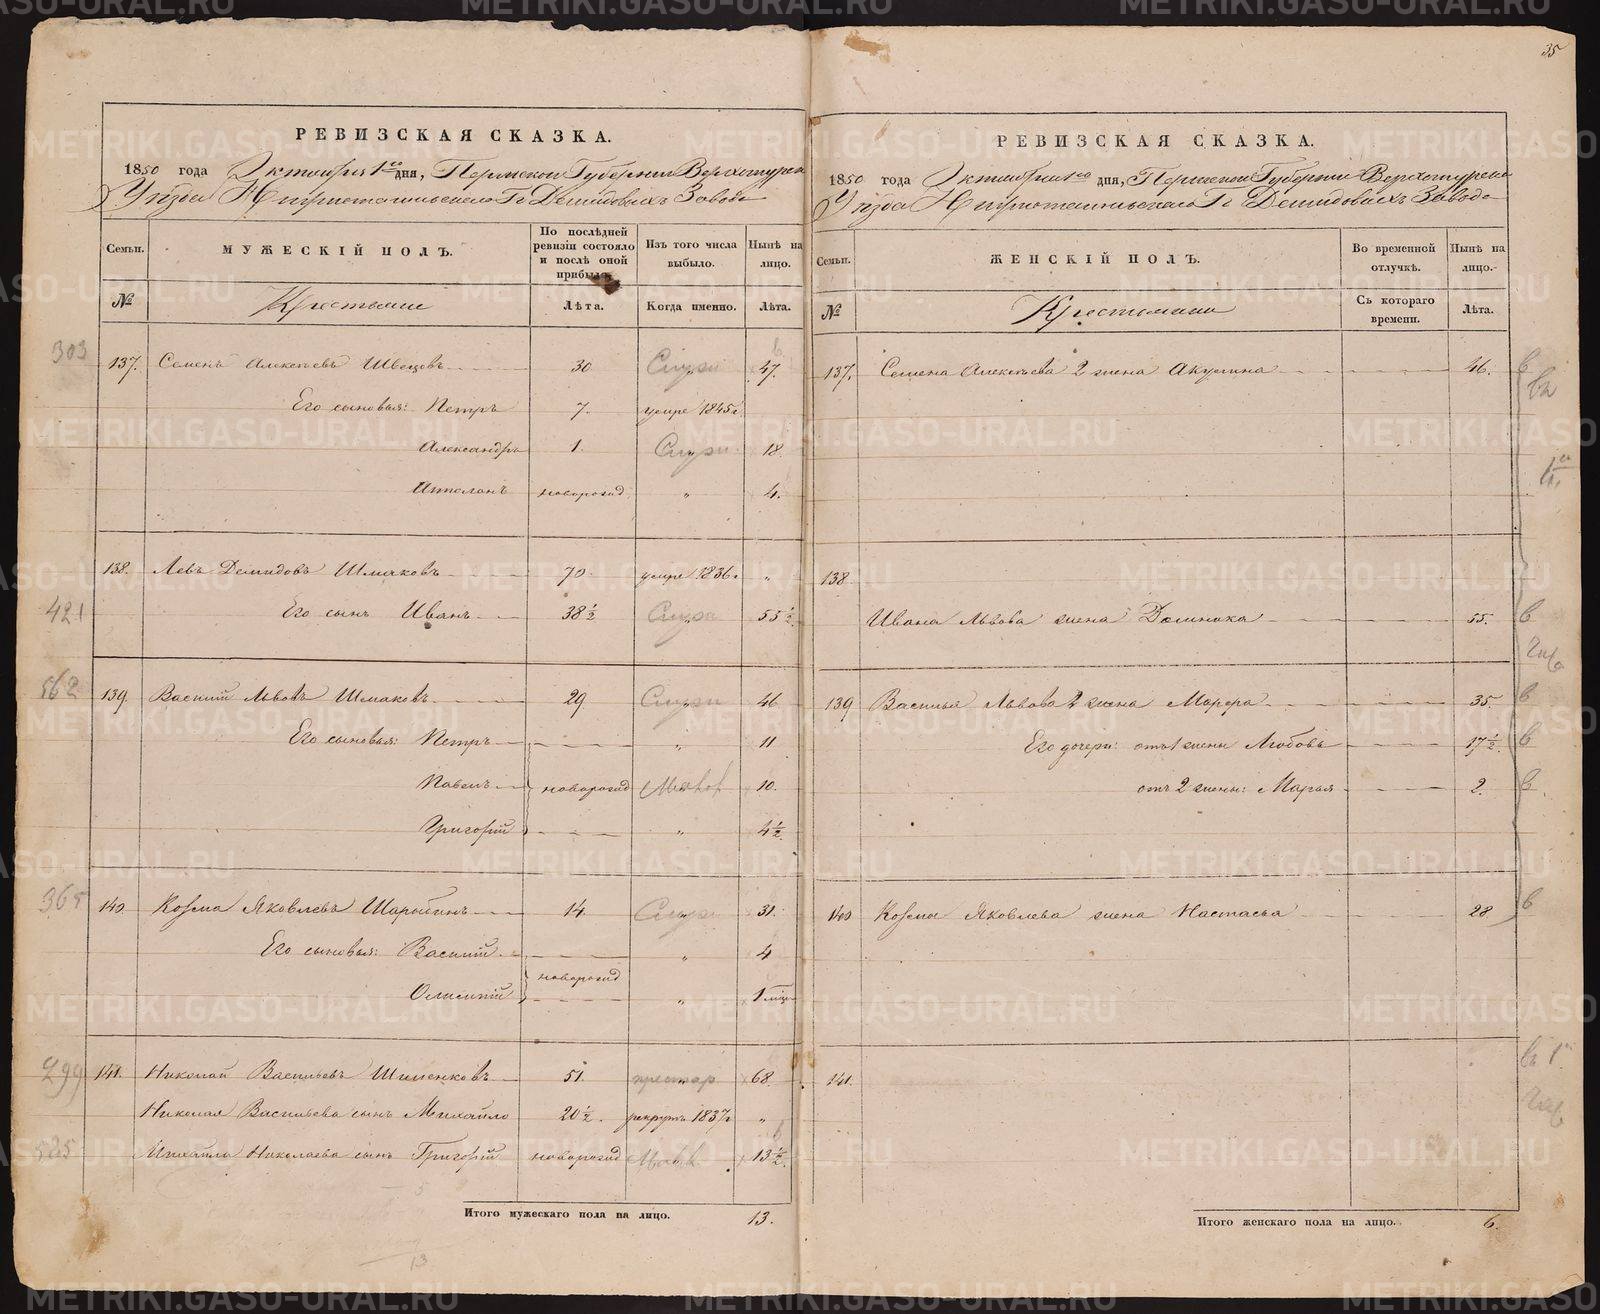 35
РЕВИЗСКАЯ СКАЗКА.
1850 года Октября 1го дня, Пермской Губернии Верхотурска
Уѣзда Нижнотагильскаго Гг Демидовыхъ Завода
Семьи. МУЖЕСКІЙ ПОЛЪ. По послѣдней ревизіи состояло и послѣ оной прибыло. Изъ того числа выбыло. Нынѣ на лицо.
№ Крестьяне Лѣта. Когда именно. Лѣта.
303 137. Семенъ Алексѣевъ Швецовъ 30 47.
Его сыновья: Петръ 7. умре 1845г
Александръ 1. 18
новорожд. „ 4.
138. Левъ Демидовъ Шмаковъ 70. умре 1836г „
421 Его сынъ Иванъ 38½ 55½
562 139. Василий Львовъ Шмаковъ 29 46
Его сыновья: Петръ „ 11
Павелъ новорожд 10.
Григорій „ 4½
365 140. Козма Яковлевъ 14 31.
Его сыновья: Василій „ 4
новорожд
„ 1 мѣс
299 141. Николай Васильевъ Шиленковъ 51. престар 68.
Николая Васильева сынъ Михайло 20½. рекрутъ 1837г „
525 Михайла Николаева сынъ Григорій новорожд 13½.
Итого мужескаго пола на лицо. 13.
13
РЕВИЗСКАЯ СКАЗКА.
1850 года Октября 1го дня, Пермской Губернии Верхотурска
Уѣзда Нижнотагильскаго Гг Демидовыхъ Завода
Семьи. ЖЕНСКІЙ ПОЛЪ. Во временной отлучкѣ. Нынѣ на лицо.
№ Крестьянки Съ котораго времени. Лѣта.
137. Семена Алексѣева 2 жена Акулина 46.
138
Ивана Львова жена Домника 55.
139 Василья Львова 2 жена Марфа 35
Его дочери: отъ 1 жены Любовь 17½.
отъ 2 жены: Марья 2.
140 Козмы Яковлева жена Настасья 28
141.
Итого женскаго пола на лицо. 6.
METRIKI.GASO-URAL.RU